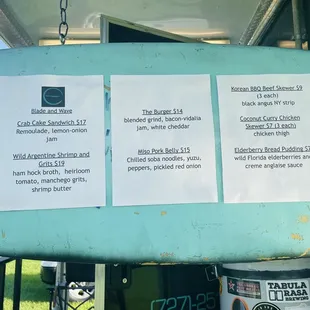 Blade and Wave
Crab Cake Sandwich $17
Remoulade, lemon-onion
jam
Wild Argentine Shrimp and
Grits $19
ham hock broth, heirloom
tomato, manchego grits,
shrimp butter
The Burger $14
blended grind, bacon-vidalia
jam, white cheddar
Miso Pork Belly $15
Chilled soba noodles, yuzu,
peppers, pickled red onion
Korean BBQ Beef Skewer $9
(3 each)
black angus NY strip
Coconut Curry Chicken
Skewer $7 (3 each)
chicken thigh
Elderberry Bread Pudding
wild Florida elderberries and
creme anglaise sauce
TABULA
RASA
BREWING
(727)